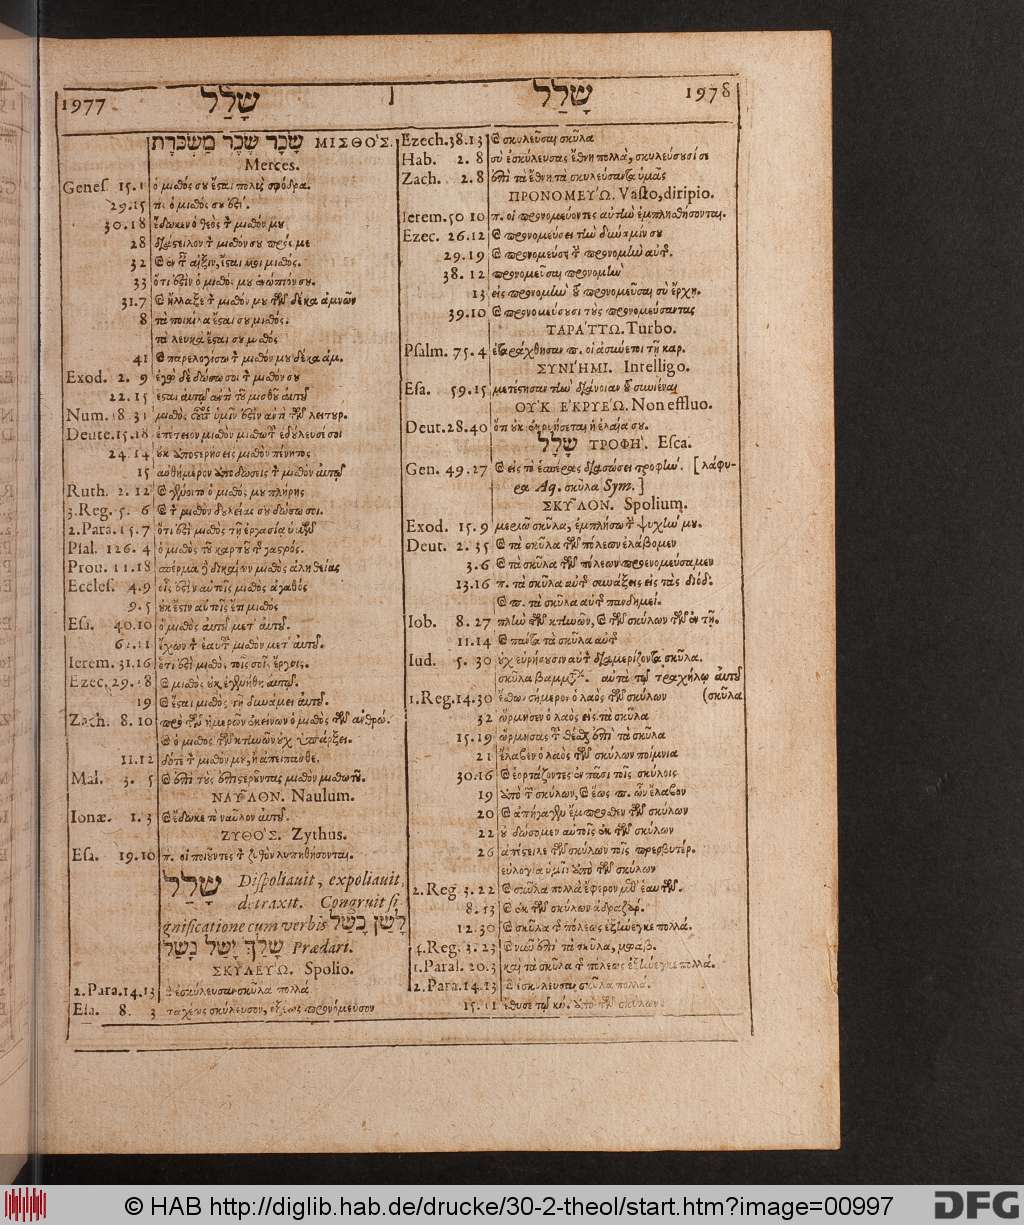 1977 שָׁלַל
שָׁלַל 1978
שָׂכָר שֶׂכֶר מַשְׂכֹּרֶת ΜΙΣΘΟ'Σ.
Merces.
Genes. 15.1 ὁ μισθός σου ἔσται πολὺς σφόδρα.
29.15 τίς ὁ μισθός σου ἐστί.
30.18 ἔδωκεν ὁ θεὸς τ μισθόν μου
28 διάστειλον τ μισθόν σου πρός με
32 ἔσται μοι μισθός.
33 ὅτι ἐστὶν ὁ μισθός μου ἐνώπιόν σου.
31.7 καὶ ἤλλαξε τ μισθόν μου τῶν δέκα ἀμνῶν
8 τὰ ποικίλα ἔσται σου μισθός.
τὰ λευκὰ ἔσται σου μισθός
41 καὶ παρελογίσω τ μισθόν μου δέκα ἀμ.
Exod. 2. 9 ἐγὼ δὲ δώσω σοι τ μισθόν σου
22. 15 ἔσται αὐτῷ ἀντὶ τοῦ μισθοῦ αὐτοῦ
Num. 18. 31 μισθὸς ὑμῖν ἐστιν ἀντὶ τῶν λειτουρ.
Deute. 15.18 ἐπέτειον μισθὸν μισθωτ ἐδούλευσέ σοι
24.14 οὐκ ἀποστερήσεις μισθὸν πένητος
15 αὐθήμερον ἀποδώσεις τ μισθὸν αὐτῷ
Ruth. 2. 12 καὶ γένοιτο ὁ μισθός μου πλήρης
3.Reg. 5. 6 καὶ τ μισθὸν δουλείας σου δώσω σοι.
2.Para. 15. 7 ὅτι ἐστὶ μισθὸς τῇ ἐργασίᾳ ὑμῶν
Psal. 126. 4 ὁ μισθὸς τοῦ καρποῦ τ γαστρός.
Prou. 11.18 σπέρμα δικαίων μισθὸς ἀληθείας
Eccles. 4.9 οἷς ἐστὶν αὐτοῖς μισθὸς ἀγαθός
9. 5 οὐκ ἔστιν αὐτοῖς ἔτι μισθός
Esa. 40.10 ὁ μισθὸς αὐτοῦ μετ' αὐτοῦ.
62.11 ἔχων τ ἑαυτ μισθὸν μετ' αὐτοῦ.
Ierem. 31.16 ὅτι ἐστὶ μισθὸς τοῖς σοῖς ἔργοις.
Ezec. 29. 18 καὶ μισθὸς οὐκ ἐγενήθη αὐτῷ.
19 καὶ ἔσται μισθὸς τῇ δυνάμει αὐτοῦ.
Zach. 8. 10 πρὸ τῶν ἡμερῶν ἐκείνων ὁ μισθὸς τῶν ἀνθρώ.
καὶ ὁ μισθὸς τῶν κτηνῶν οὐχ ὑπάρξει.
11.12 δότε τ μισθόν μου, ἢ ἀπείπασθε.
Mal. 3. 5 καὶ ἐπὶ τοὺς ἀποστεροῦντας μισθὸν μισθωτοῦ.
ΝΑΥ͂ΛΟΝ. Naulum.
Ionæ. 1. 3 καὶ ἔδωκε τὸ ναῦλον αὐτοῦ.
ΖΥΘΟ'Σ. Zythus.
Esa. 19.10 π. οἱ ποιοῦντες τ ζύθον λυπηθήσονται.
שָׁלַל Dispoliauit, expoliauit,
detraxit. Congruit si
gnificatione cum verbis
שָׁלַךְ יָשַׁל נָשַׁל Prædari.
ΣΚΥΛΕΥ'Ω. Spolio.
2.Para. 14.13 καὶ ἐσκύλευσαν σκῦλα πολλά
Esa. 8. 3 ταχέως σκύλευσον, ὀξέως προνόμευσον
Ezech. 38.13 καὶ σκυλεῦσαι σκῦλα
Hab. 2. 8 σὺ ἐσκύλευσας ἔθνη πολλά, σκυλεύσουσί σε
Zach. 2.8 ἐπὶ τὰ ἔθνη τὰ σκυλεύσαντα ὑμᾶς
ΠΡΟΝΟΜΕΥ'Ω. Vasto, diripio.
Ierem. 50 10 π. οἱ προνομεύοντες αὐτὴν ἐμπλησθήσονται.
Ezec. 26.12 καὶ προνομεύσει τὴν δύναμίν σου
29.19 καὶ προνομεύσει τ προνομὴν αὐτ.
38. 12 προνομεῦσαι προνομήν
13 εἰς προνομὴν τ προνομεῦσαι σὺ ἔρχῃ.
39.10 καὶ προνομεύσουσι τοὺς προνομεύσαντας
ΤΑΡΑ'ΤΤΩ. Turbo.
Psalm. 75. 4 ἐταράχθησαν π. οἱ ἀσύνετοι τῇ καρ.
ΣΥΝΙ'ΗΜΙ. Intelligo.
Esa. 59.15 μετέστησαν τὴν διάνοιαν τ συνιέναι
ΟΥ'Κ Ε'ΚΡΥΕ'Ω. Non effluo.
Deut. 28.40 ὅτι οὐκ ἐκρυήσεται ἡ ἐλαία σου.
שָׁלָל ΤΡΟΦΗ'. Esca.
Gen. 49.27 καὶ εἰς τὸ ἑσπέρας διαδώσει τροφήν. [λάφυ-
ρα Aq. σκῦλα Sym.]
ΣΚΥ͂ΛΟΝ. Spolium.
Exod. 15. 9 μεριῶ σκῦλα, ἐμπλήσω τ ψυχήν μου.
Deut. 2. 35 καὶ τὰ σκῦλα τῶν πόλεων ἐλάβομεν
3. 6 καὶ τὰ σκῦλα τῶν πόλεων προενομεύσαμεν
13.16 π. τὰ σκῦλα αὐτ συνάξεις εἰς τὰς διόδ.
καὶ π. τὰ σκῦλα αὐτ πανδημεί.
Iob. 8. 27 πλὴν τῶν κτηνῶν, καὶ τῶν σκύλων τῶν ἐν τῇ.
11.14 καὶ πάντα τὰ σκῦλα αὐτ
Iud. 5. 30 οὐχ εὑρήσουσιν αὐτ διαμερίζοντα σκῦλα.
σκῦλα βαμμάτ. αὐτὰ τῷ τραχήλῳ αὐτοῦ
1.Reg. 14.30 ἔφαγεν σήμερον ὁ λαὸς τῶν σκύλων (σκῦλα
32 ὥρμησεν ὁ λαὸς εἰς τὰ σκῦλα
15.19 ὥρμησας τ θέσθαι ἐπὶ τὰ σκῦλα
21 ἔλαβεν ὁ λαὸς τῶν σκύλων ποίμνια
30.16 καὶ ἑορτάζοντες ἐν πᾶσι τοῖς σκύλοις
19 ἀπὸ τ σκύλων, καὶ ἕως π. ὧν ἔλαβον
20 καὶ ἀπήγαγεν ἔμπροσθεν τῶν σκύλων
22 οὐ δώσομεν αὐτοῖς ἐκ τῶν σκύλων
26 ἀπέστειλε τῶν σκύλων τοῖς πρεσβυτέρ.
εὐλογία ὑμῖν ἀπὸ τῶν σκύλων
2.Reg. 3. 22 καὶ σκῦλα πολλὰ ἔφερον μεθ' ἑαυτῶν.
8. 13 καὶ ἐκ τῶν σκύλων ἀδρααζάρ.
12. 30 καὶ σκῦλα τ πόλεως ἐξήνεγκε πολλά.
4.Reg. 3. 23 καὶ νῦν ἐπὶ τὰ σκῦλα, μωάβ.
1.Paral. 20.3 καὶ τὰ σκῦλα τ πόλεως ἐξήνεγκε πολλά.
2.Para. 14.13 καὶ ἐσκύλευσαν σκῦλα πολλά.
15. 11 ἔθυσε τῷ κυ. ἀπὸ τῶν σκύλων
© HAB http://diglib.hab.de/drucke/30-2-theol/start.htm?image=00997
DFG